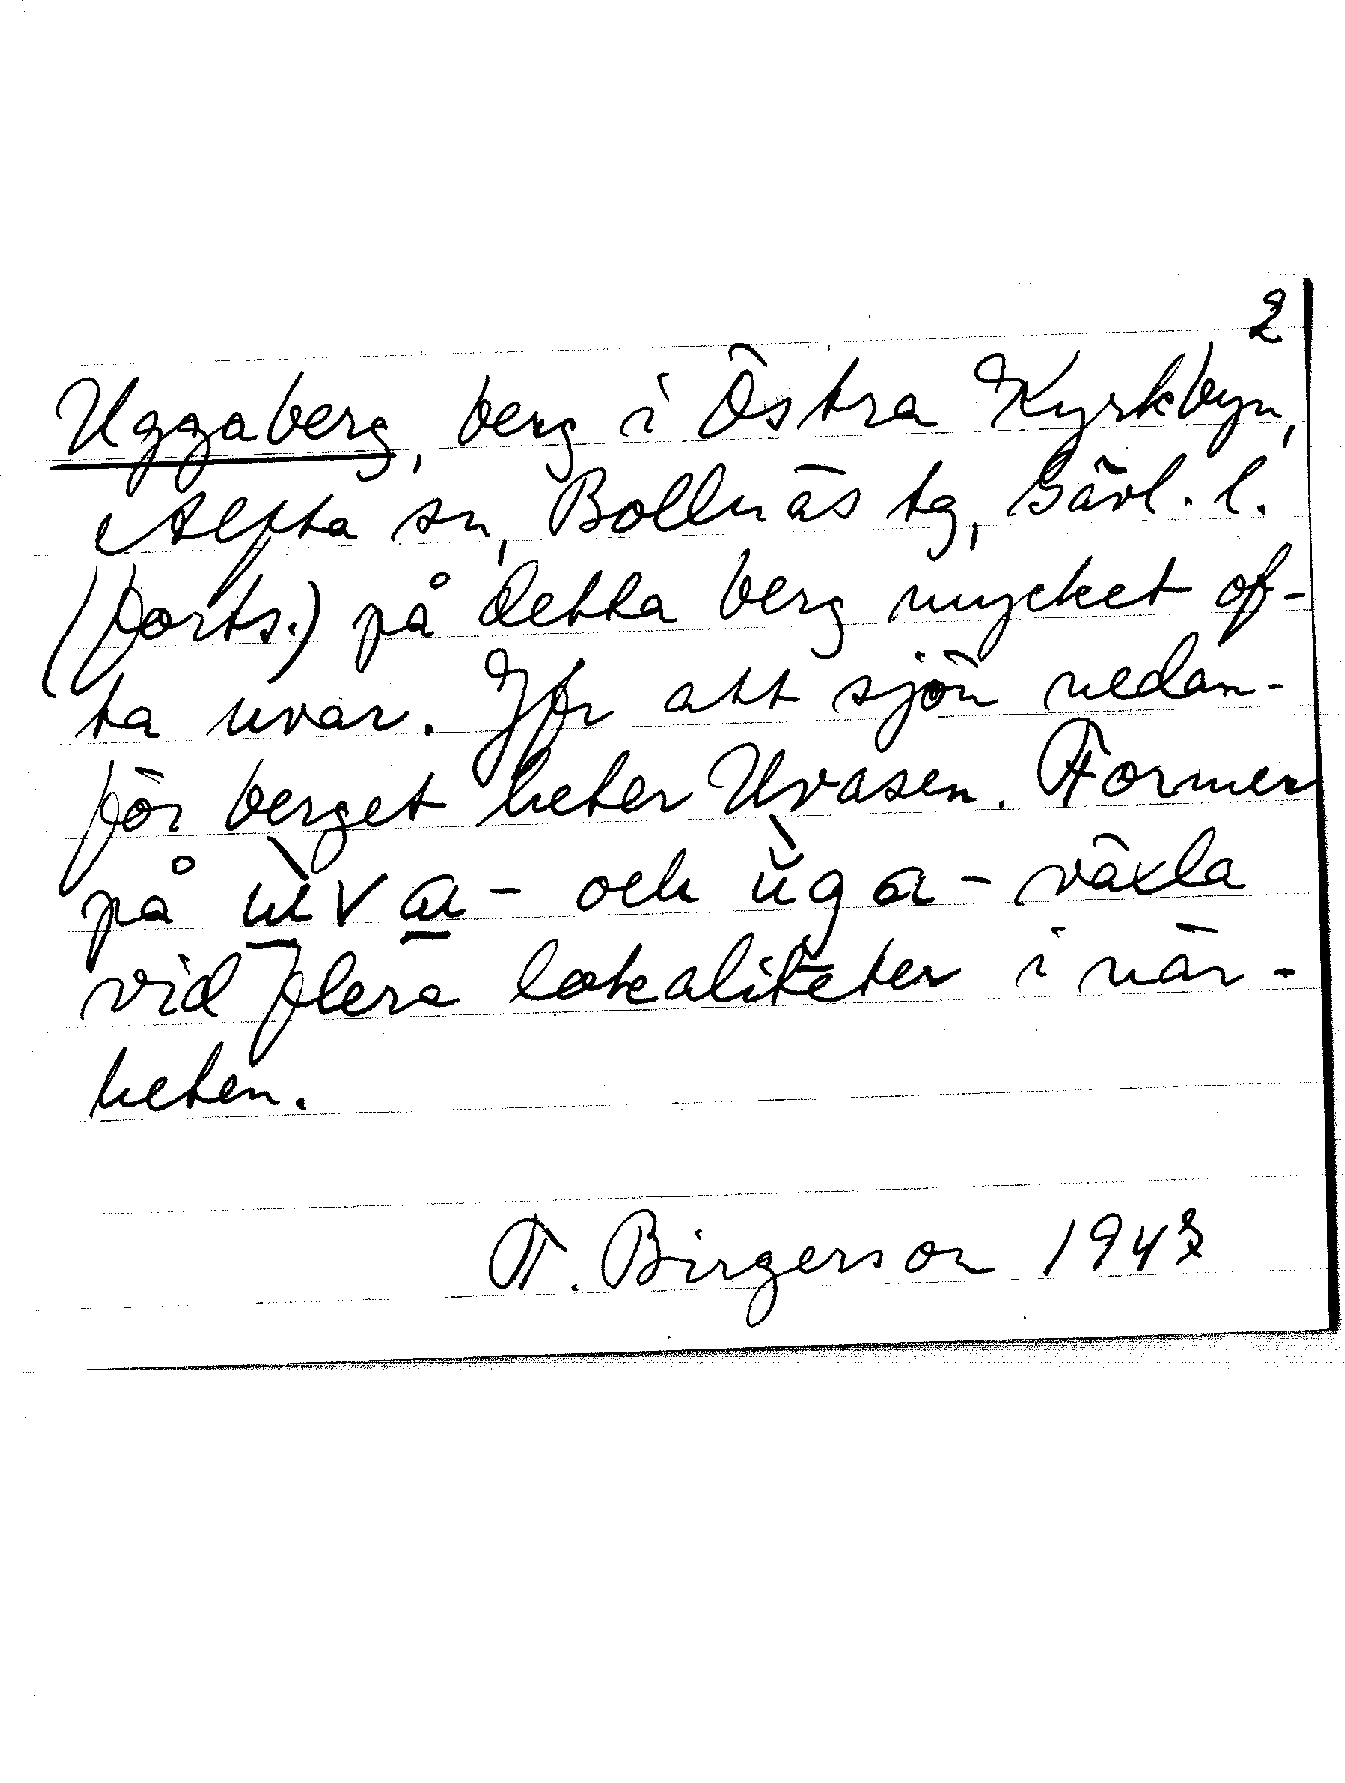 2
Uggaberg, berg i Östra Kyrkbyn,
Alfta sn, Bollnäs tg, Gävl. l.
(forts.) på detta berg mycket of-
ta uvar. Jfr att sjön nedan-
för berget heter Uvasen. Former
på ùva- och ùga- växla
vid flera lokaliteter i när-
heten.
F. Birgerson 1943